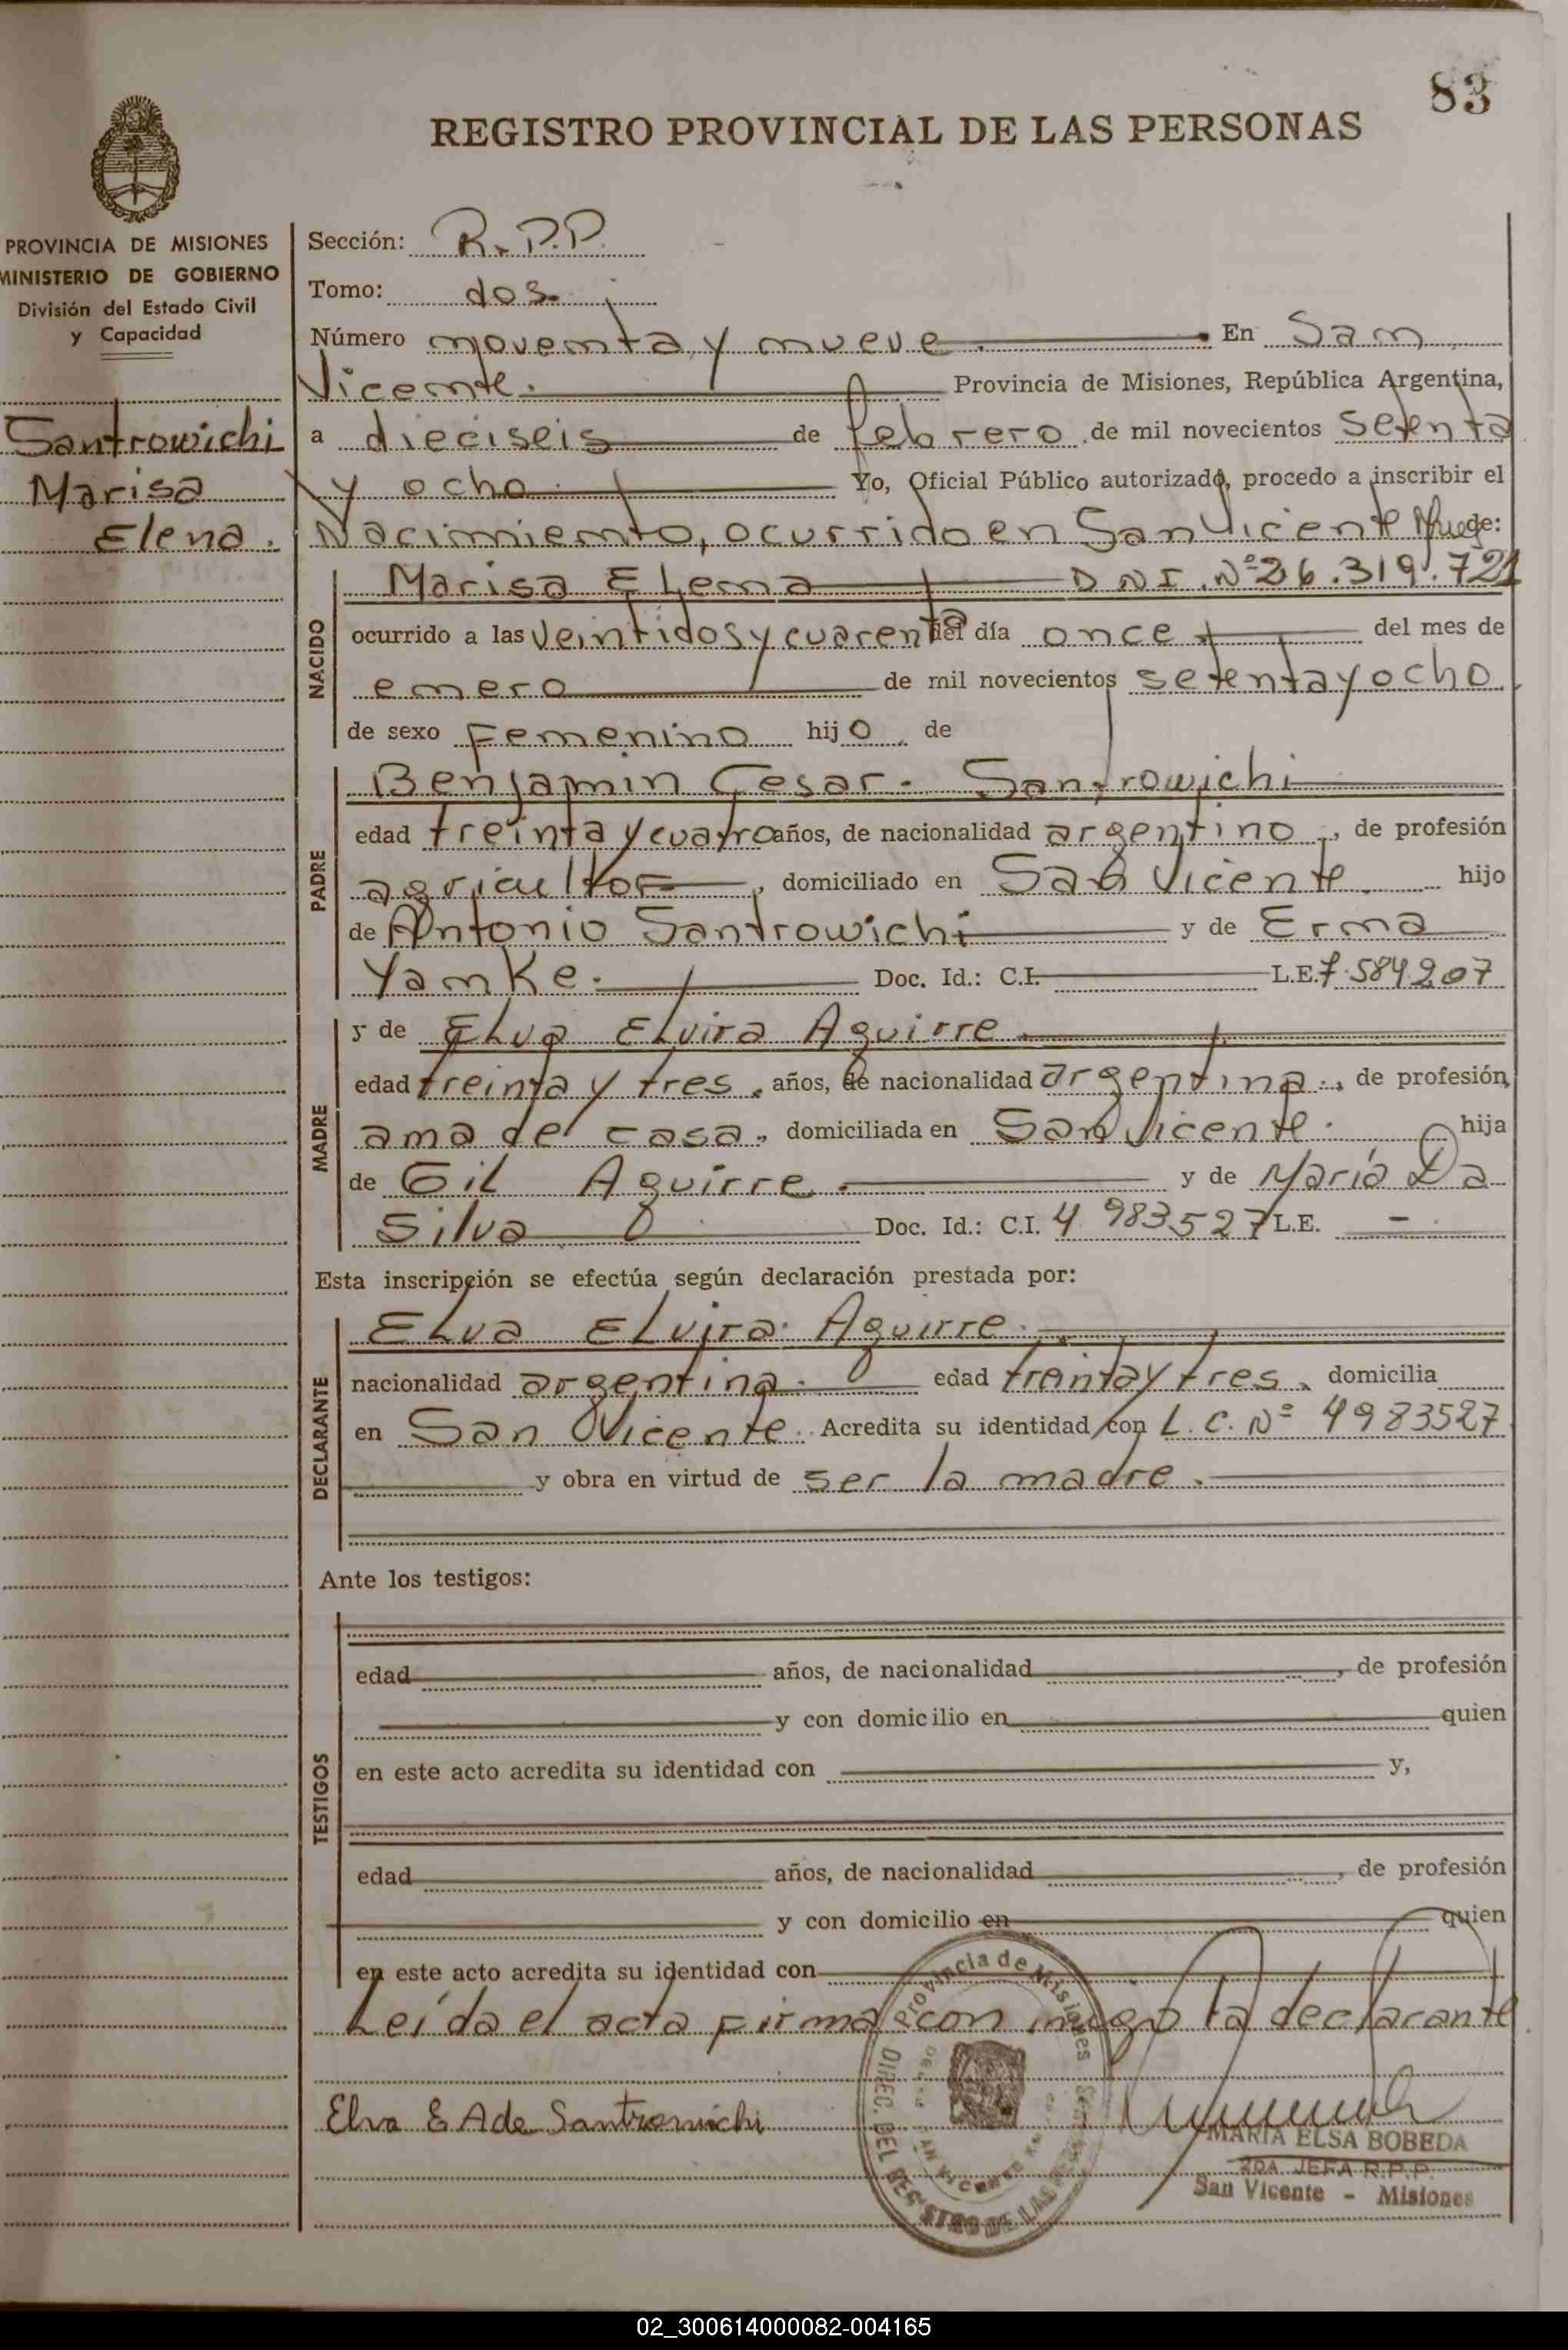 83
REGISTRO PROVINCIAL DE LAS PERSONAS
PROVINCIA DE MISIONES
MINISTERIO DE GOBIERNO
División del Estado Civil
y Capacidad
Santrowichi
Marisa
Elena.
Sección: R.P.P.
Tomo: dos.
Número noventa y nueve. En San
Vicente. Provincia de Misiones, República Argentina,
a dieciseis de febrero de mil novecientos setenta
y ocho. Yo, Oficial Público autorizado, procedo a inscribir el
Nacimiento, ocurrido en San Vicente de:
NACIDO
Marisa Elena D N I. Nº 26.319.721
ocurrido a las veintidos y cuarenta del día once del mes de
enero de mil novecientos setenta y ocho
de sexo Femenino hijo de
PADRE
Benjamin Cesar. Santrowichi
edad treinta y cuatro años, de nacionalidad argentino., de profesión
agricultor, domiciliado en San Vicente hijo
de Antonio Santrowichi y de Erma
Yamke. Doc. Id.: C.I. L.E. 7.584.207
MADRE
y de Elva Elvira Aguirre.
edad treinta y tres. años, de nacionalidad argentina., de profesión
ama de casa, domiciliada en San Vicente. hija
de Gil Aguirre. y de María Da
Silva Doc. Id.: C.I. 4 983527 L.E. -
Esta inscripción se efectúa según declaración prestada por:
DECLARANTE
Elva Elvira Aguirre.
nacionalidad argentina. edad treinta y tres. domicilia
en San Vicente. Acredita su identidad con L.C. Nº 4983527
y obra en virtud de ser la madre.
Ante los testigos:
TESTIGOS
edad años, de nacionalidad , de profesión
y con domicilio en quien
en este acto acredita su identidad con y,
edad años, de nacionalidad , de profesión
y con domicilio en quien
en este acto acredita su identidad con
Leída el acta firma con migo la declarante
Elva E A de Santrowichi
Provincia de Misiones
DIREC. DEL REGISTRO DE LAS
MARIA ELSA BOBEDA
2DA JEFA R.P.P.
San Vicente - Misiones
02_300614000082-004165